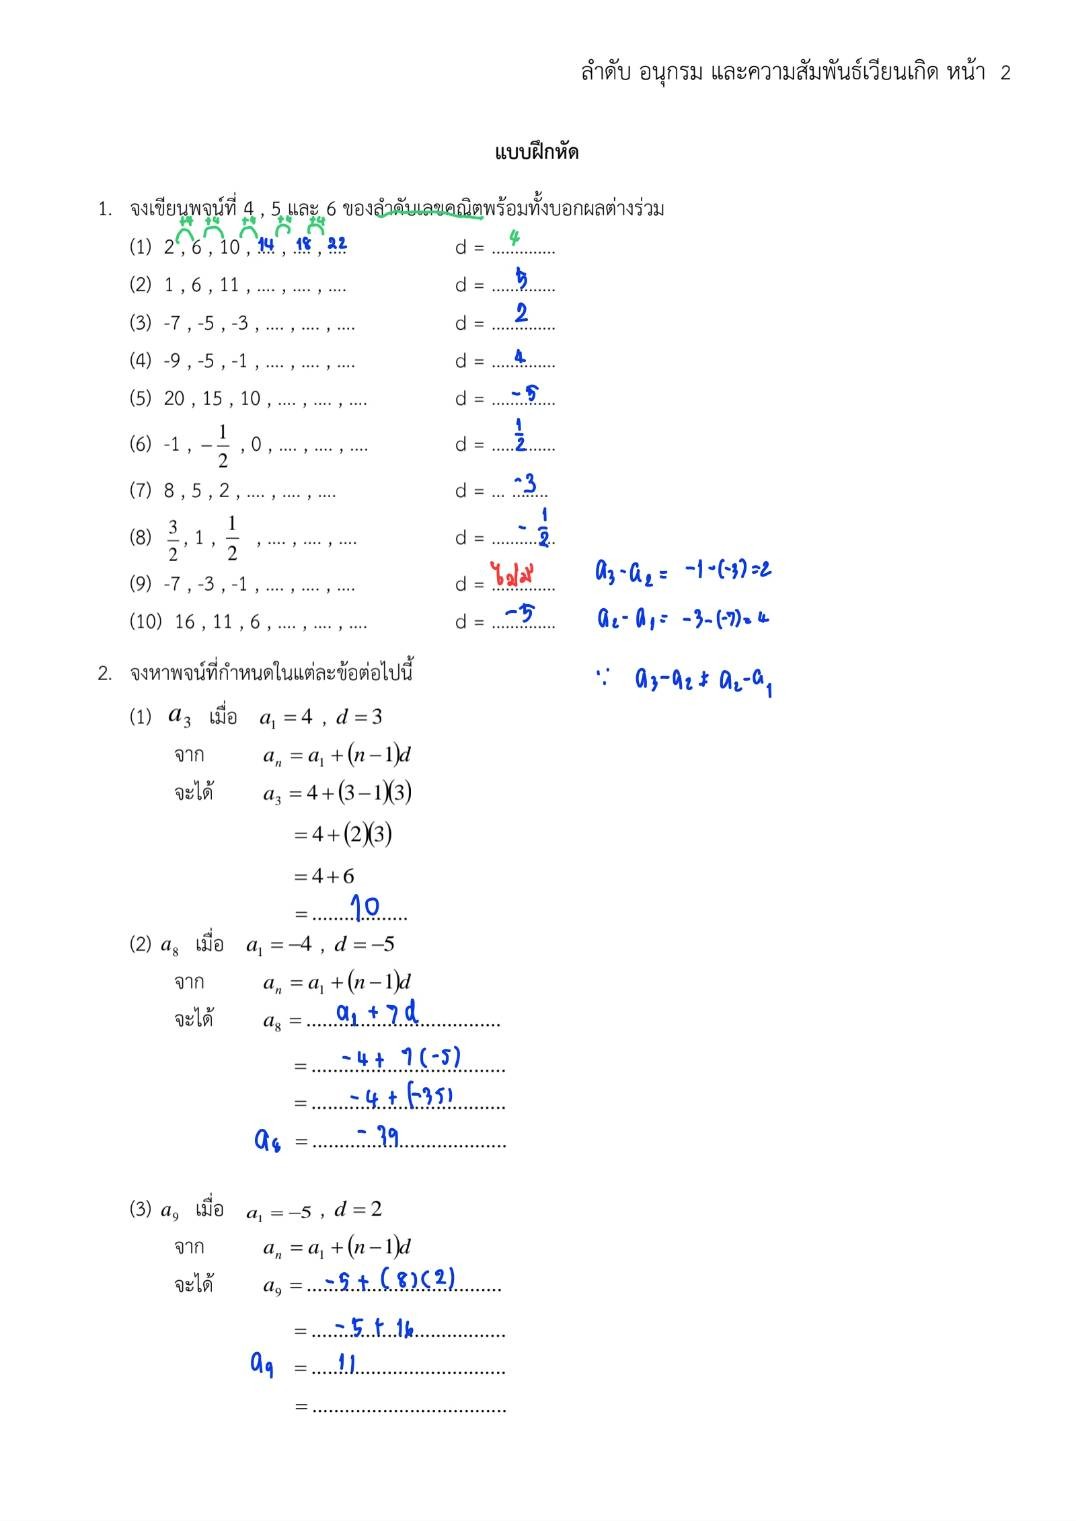 ลำดับ อนุกรม และความสัมพันธ์เวียนเกิด หน้า 2
แบบฝึกหัด
1. จงเขียนพจน์ที่ 4 , 5 และ 6 ของลำดับเลขคณิตพร้อมทั้งบอกผลต่างร่วม
+4 +4 +4 +4 +4
(1) 2 , 6 , 10 , 14 , 18 , 22 d = 4
(2) 1 , 6 , 11 , .... , .... , .... d = 5
(3) -7 , -5 , -3 , .... , .... , .... d = 2
(4) -9 , -5 , -1 , .... , .... , .... d = 4
(5) 20 , 15 , 10 , .... , .... , .... d = -5
(6) -1 , -1/2 , 0 , .... , .... , .... d = 1/2
(7) 8 , 5 , 2 , .... , .... , .... d = -3
(8) 3/2 , 1 , 1/2 , .... , .... , .... d = -1/2
(9) -7 , -3 , -1 , .... , .... , .... d = ไม่มี a₃-a₂ = -1-(-3)=2
(10) 16 , 11 , 6 , .... , .... , .... d = -5 a₂-a₁ = -3-(-7)=4
2. จงหาพจน์ที่กำหนดในแต่ละข้อต่อไปนี้ ∵ a₃-a₂ ≠ a₂-a₁
(1) a₃ เมื่อ a₁ = 4 , d = 3
จาก aₙ = a₁ + (n-1)d
จะได้ a₃ = 4 + (3-1)(3)
= 4 + (2)(3)
= 4 + 6
= 10
(2) a₈ เมื่อ a₁ = -4 , d = -5
จาก aₙ = a₁ + (n-1)d
จะได้ a₈ = a₁ + 7d
= -4 + 7(-5)
= -4 + (-35)
a₈ = -39
(3) a₉ เมื่อ a₁ = -5 , d = 2
จาก aₙ = a₁ + (n-1)d
จะได้ a₉ = -5 + (8)(2)
= -5 + 16
a₉ = 11
= ....................................